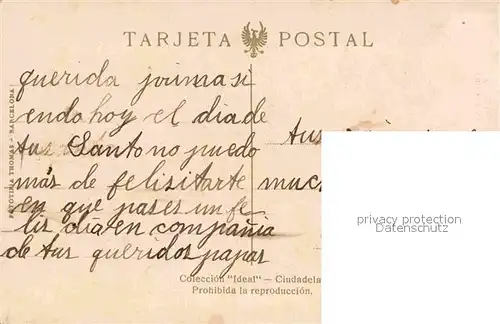 TARJETA POSTAL
querida prima si
endo hoy el dia de
tus Sánto no puedo
más de felisitarte much
en que pases un fe
lis dia en compañia
de tus queridos papas
tus
FOTOTIPIA THOMAS - BARCELONA
privacy protection
Datenschutz
Colección "Ideal" — Ciudadela
Prohibida la reproducción.